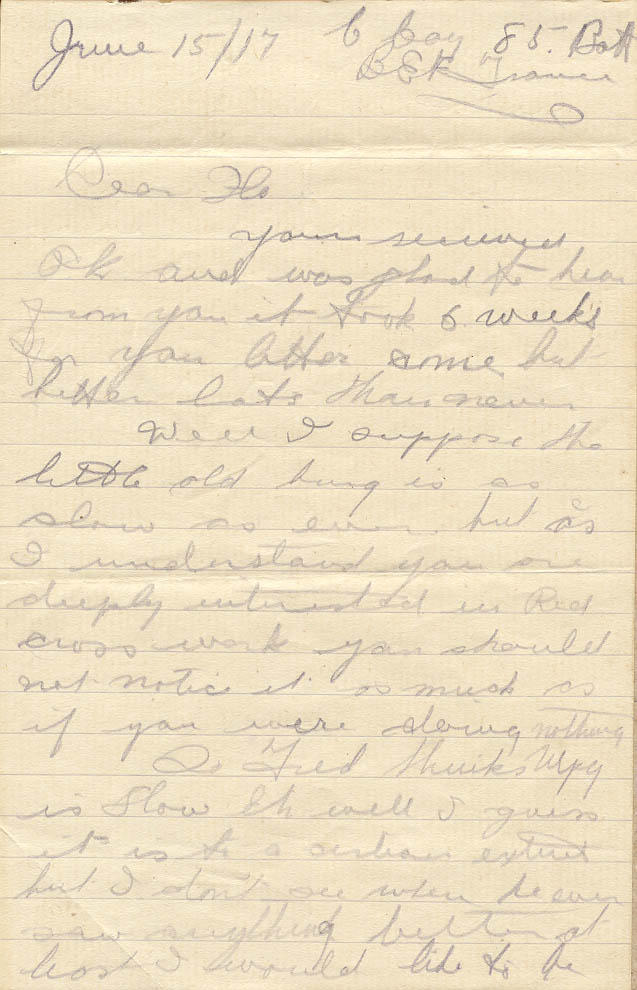 June 15/17 C Coy 85. Batt
B E F France
Dear Flo
yours received
O.k and was glad to hear
from you it took 6 weeks
for you letter come but
better late than never
Well I suppose the
little old burg is as
slow as ever but as
I understand you are
deeply interested in Red
cross work you should
not notice it as much as
if you were doing nothing
So Fred thinks Wpg
is slow Eh well I guess
it is to a certain extent
but I don't see when he ever
saw anything better at
least I would like to be